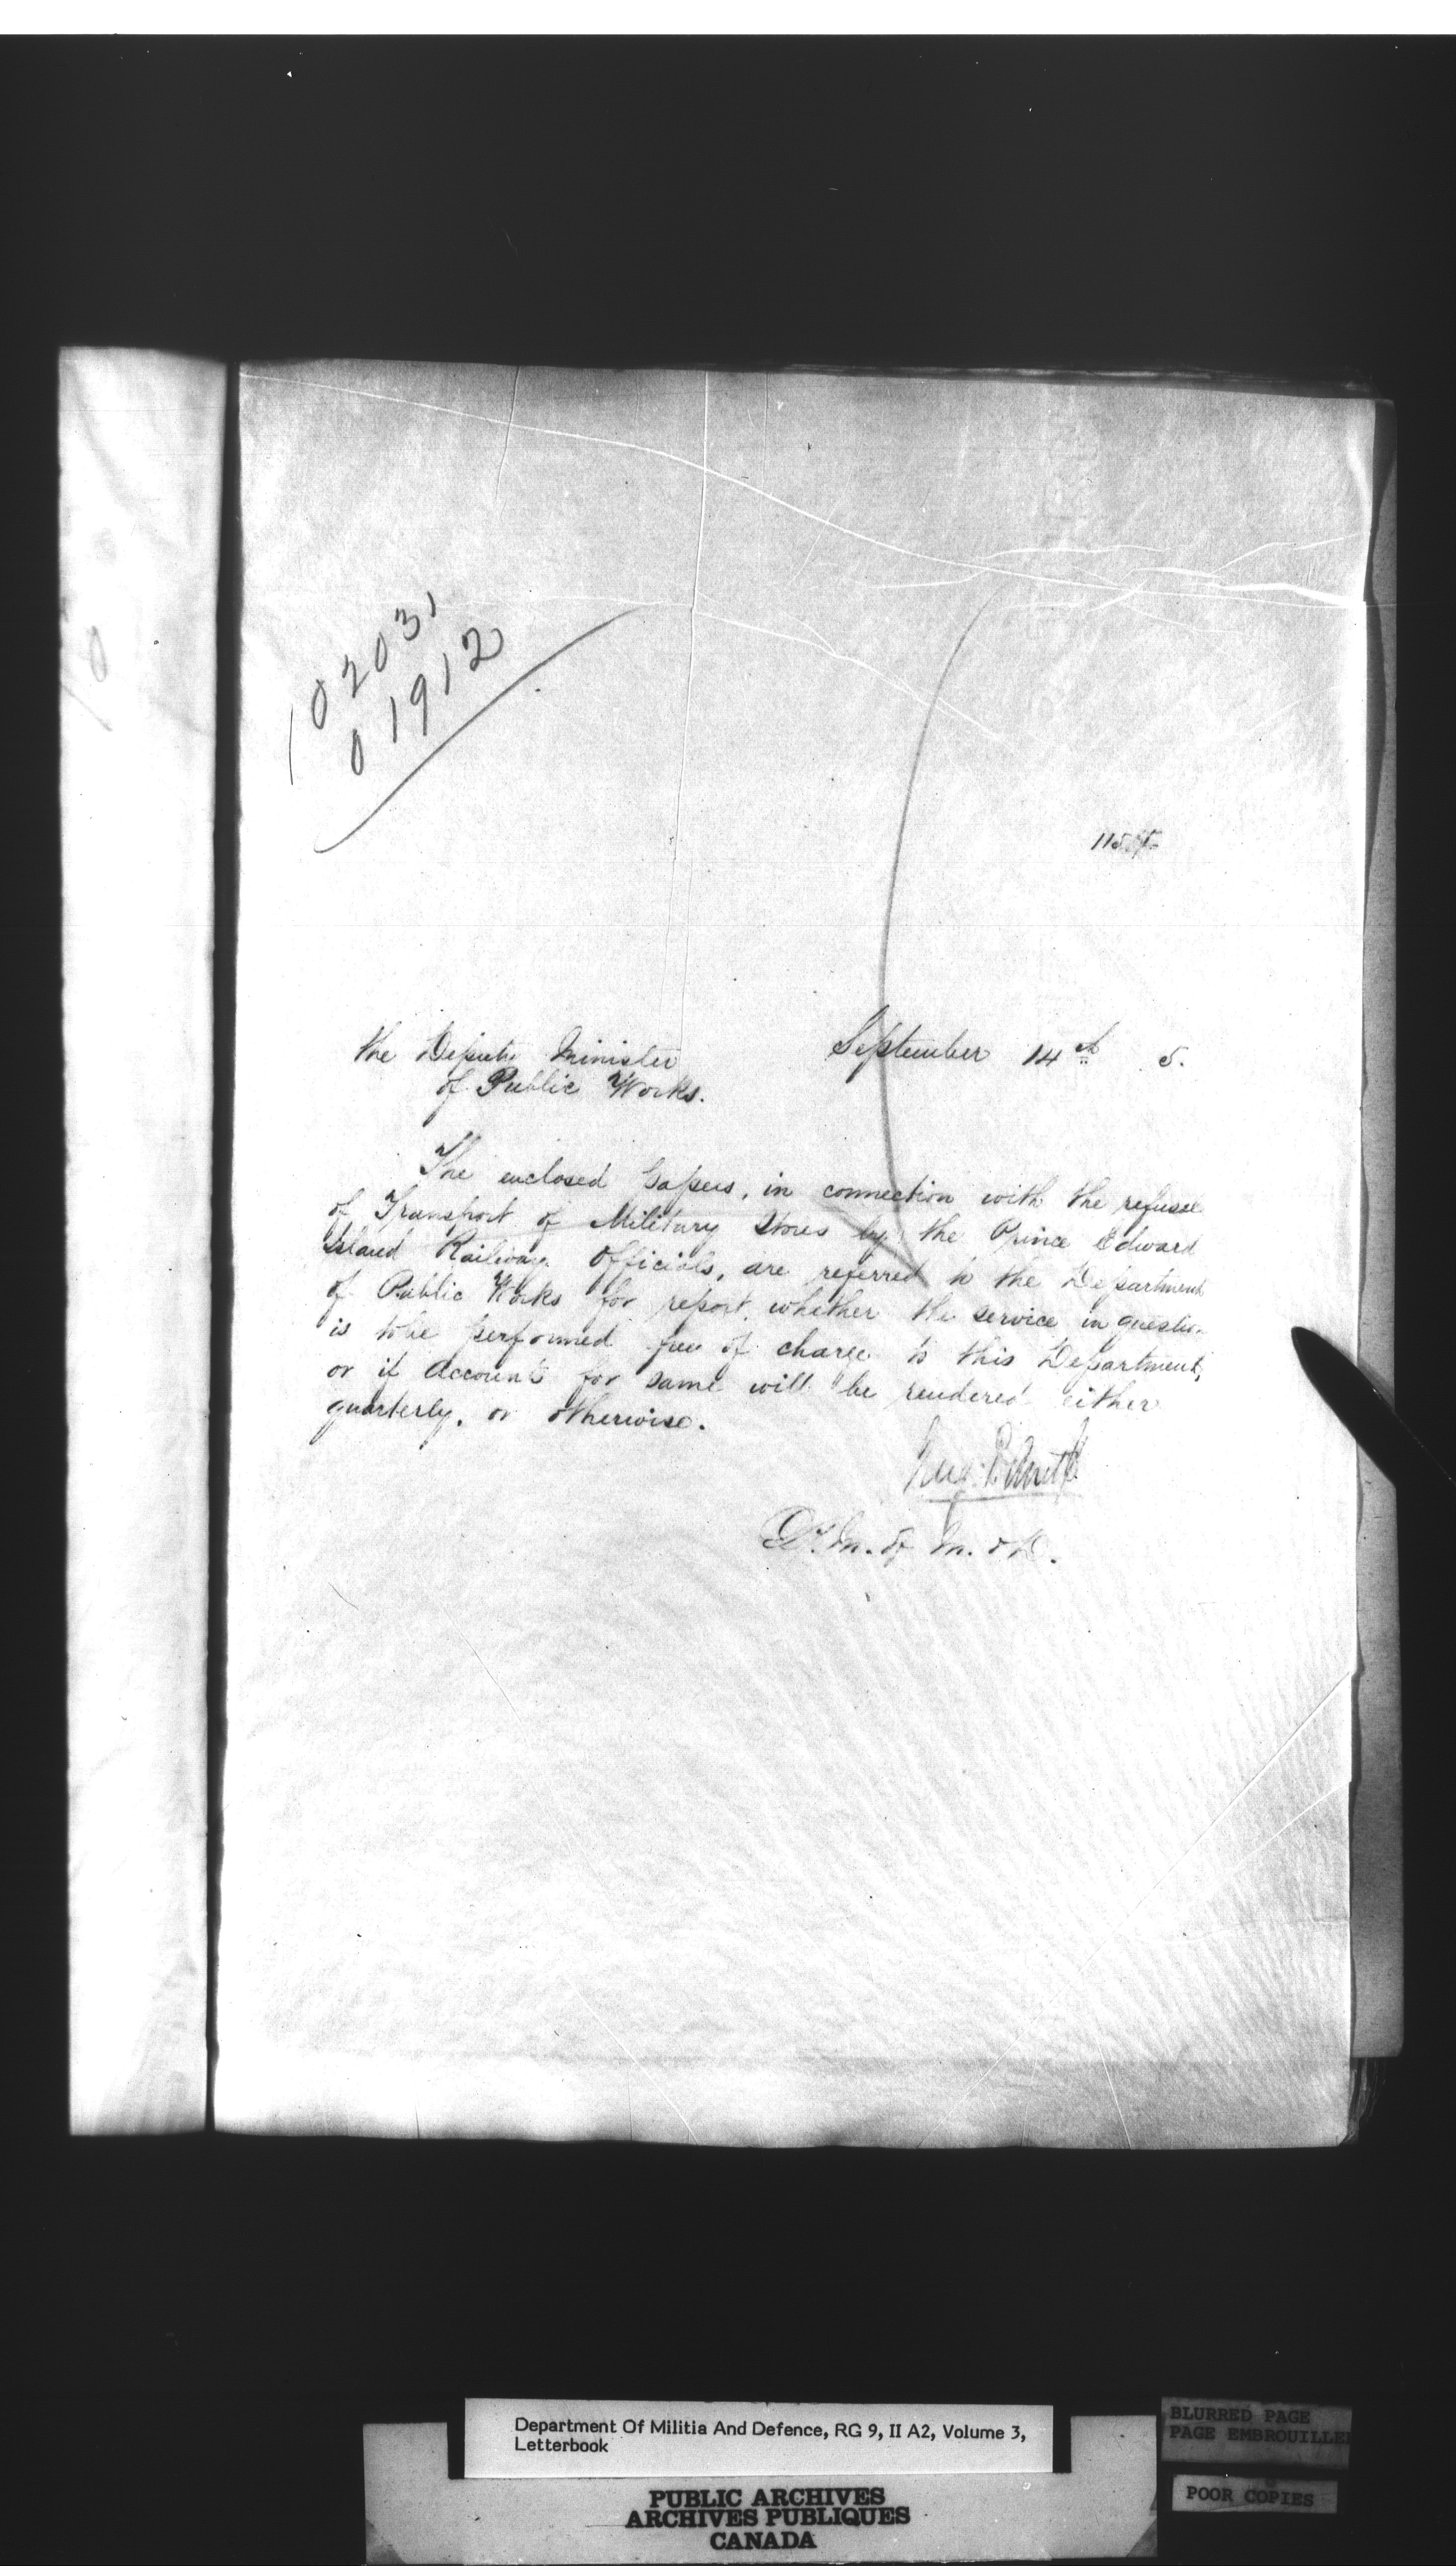 02031
01912
The Deputy Minister
of Public Works.
September 14th 5.
The enclosed papers, in connection with the refusal
of Transport of Military Stores by the Prince Edward
Island Railway Officials, are referred to the Department
of Public Works for report whether the service in question
is to be performed free of charge to this Department,
or if Accounts for same will be rendered either
quarterly, or otherwise.
D. M. of M. & D.
Department Of Militia And Defence, RG 9, II A2, Volume 3,
Letterbook
BLURRED PAGE
PAGE EMBROUILLEE
POOR COPIES
PUBLIC ARCHIVES
ARCHIVES PUBLIQUES
CANADA